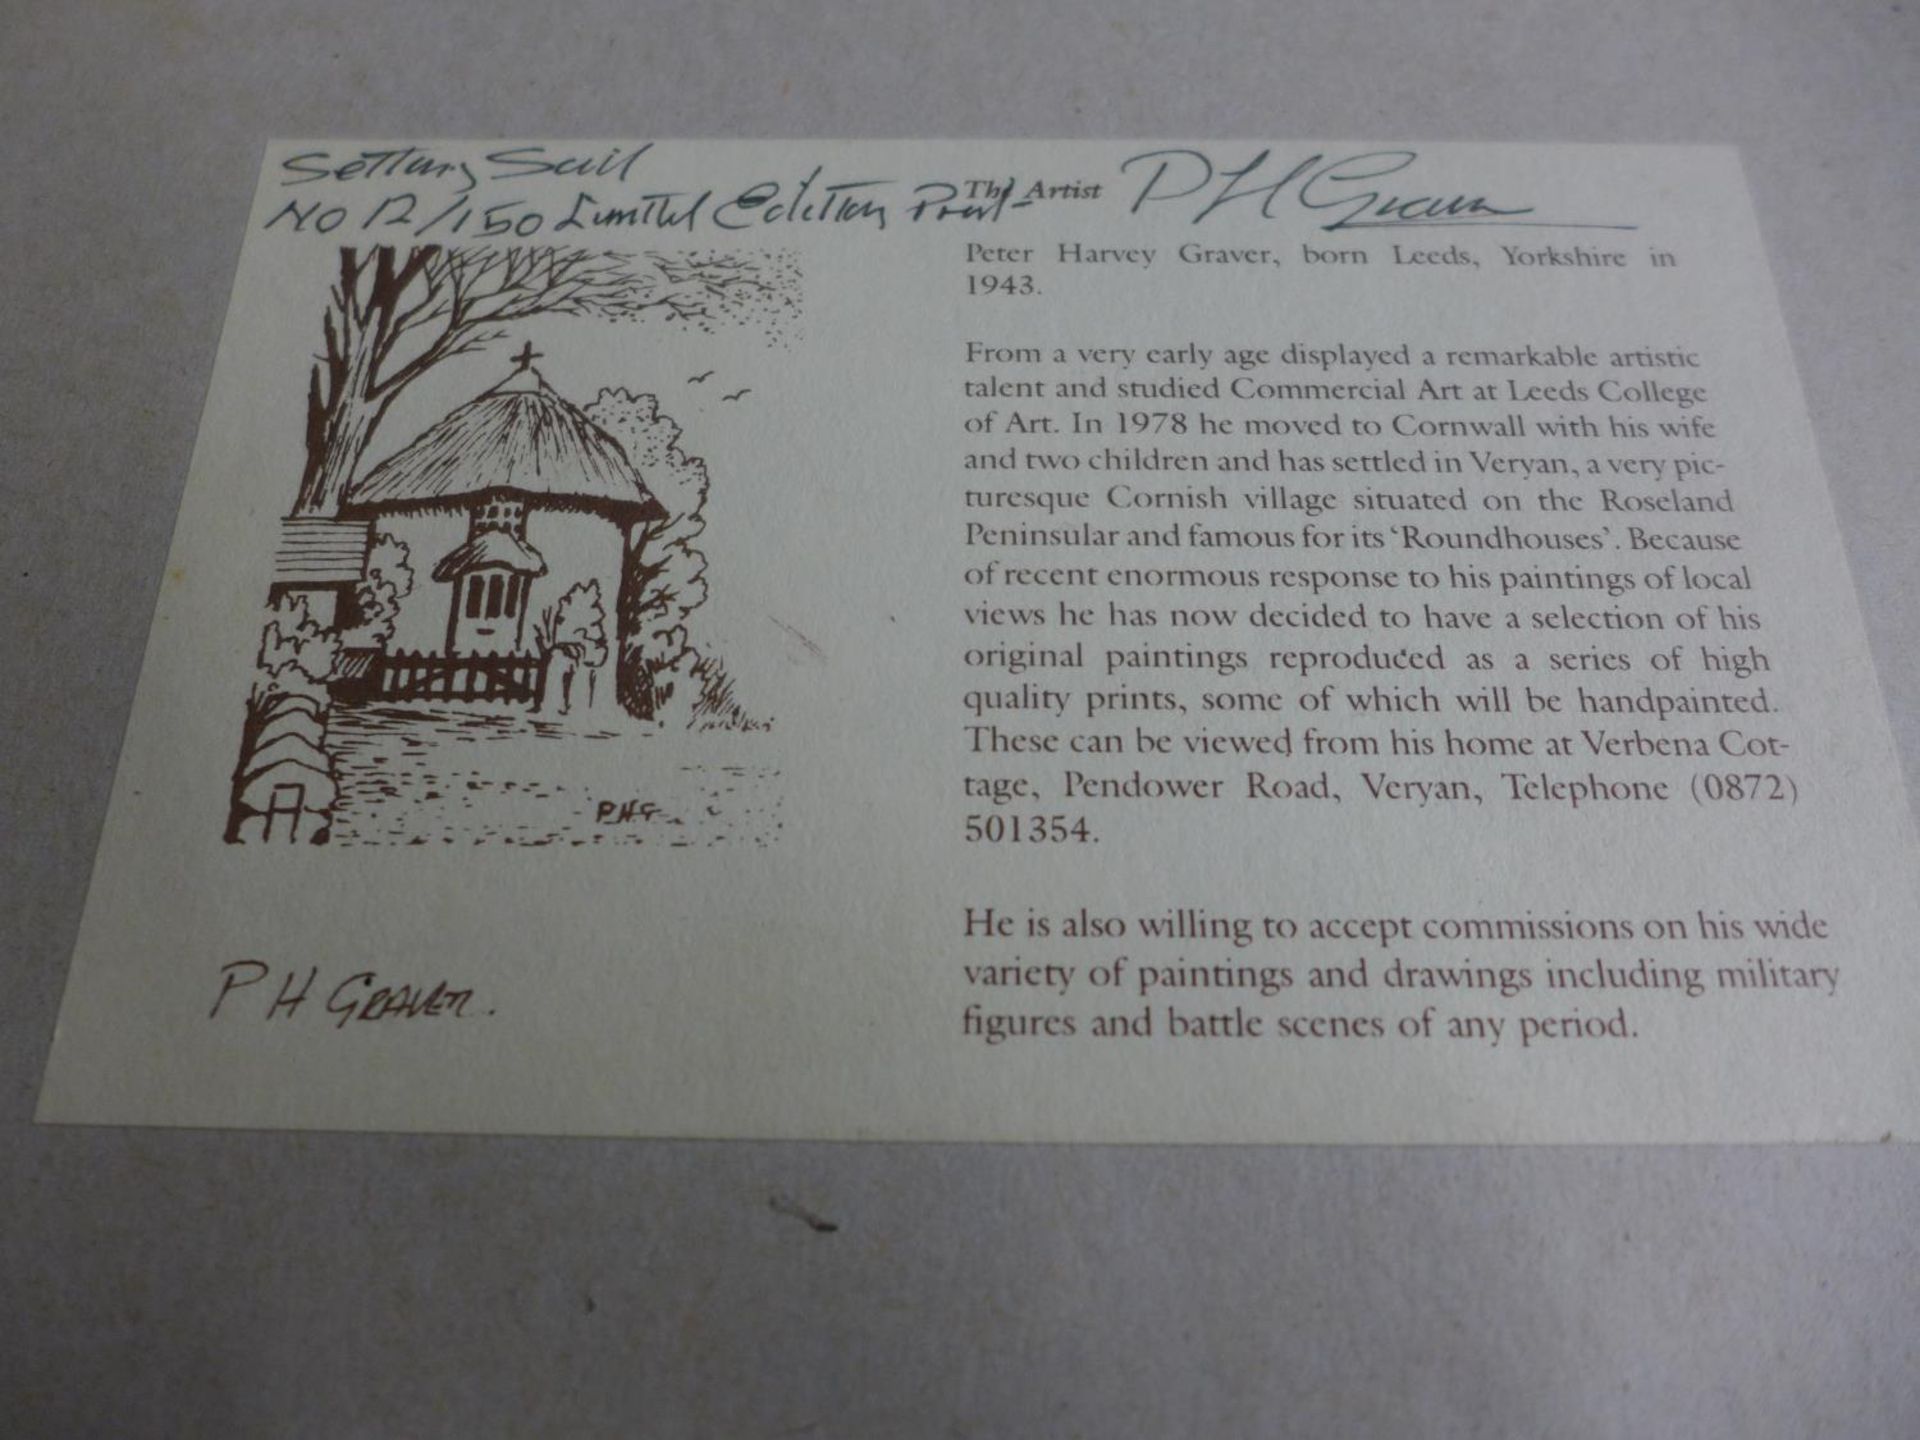 Setting Sail
No 12/150 Limited Edition Print
The Artist
P H Graver
Peter Harvey Graver, born Leeds, Yorkshire in
1943.
From a very early age displayed a remarkable artistic
talent and studied Commercial Art at Leeds College
of Art. In 1978 he moved to Cornwall with his wife
and two children and has settled in Veryan, a very pic-
turesque Cornish village situated on the Roseland
Peninsular and famous for its ‘Roundhouses’. Because
of recent enormous response to his paintings of local
views he has now decided to have a selection of his
original paintings reproduced as a series of high
quality prints, some of which will be handpainted.
These can be viewed from his home at Verbena Cot-
tage, Pendower Road, Veryan, Telephone (0872)
501354.
He is also willing to accept commissions on his wide
variety of paintings and drawings including military
figures and battle scenes of any period.
PHG
P H GRAVER.